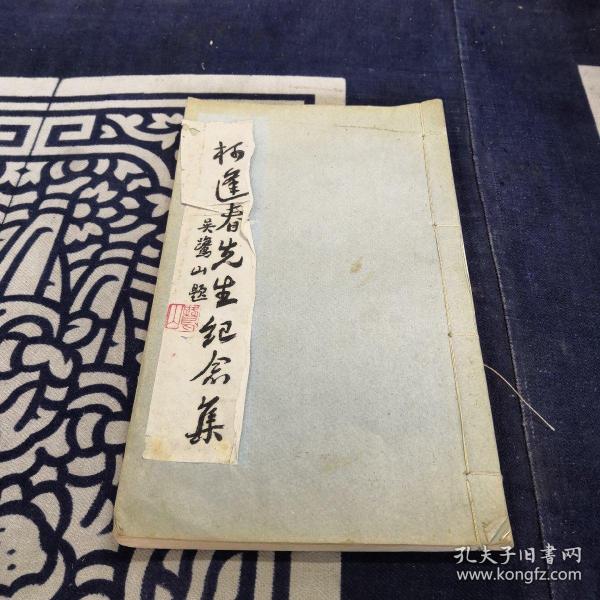 柯逢春先生纪念集
吴鹭山题
孔夫子旧書网
www.kongfz.com